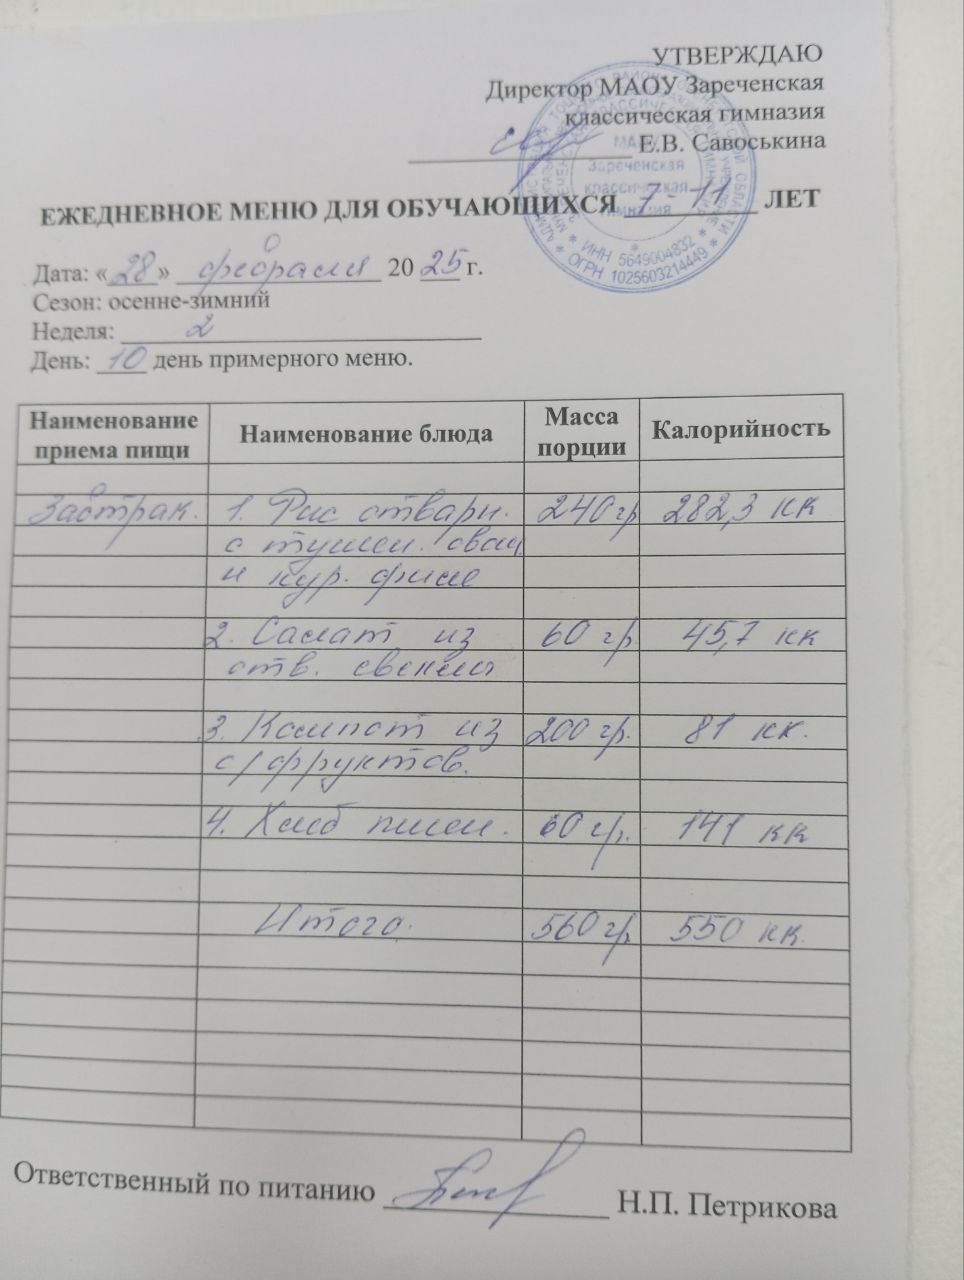 УТВЕРЖДАЮ
Директор МАОУ Зареченская
классическая гимназия
Е.В. Савоськина
МАОУ
Зареченская
классическая
гимназия
* ИНН 5649004832 *
* ОГРН 1025603214449 *
ЕЖЕДНЕВНОЕ МЕНЮ ДЛЯ ОБУЧАЮЩИХСЯ 7-11 ЛЕТ
Дата: «28» февраля 2025 г.
Сезон: осенне-зимний
Неделя: 2
День: 10 день примерного меню.
Наименование приема пищи Наименование блюда Масса порции Калорийность
Завтрак. 1. Рис отварн. 240 гр 282,3 кк
с тушен. овощ
и кур. филе
2. Салат из 60 гр 45,7 кк
отв. свеклы
3. Компот из 200 гр. 81 кк.
с/фруктов.
4. Хлеб пшен. 60 гр. 141 кк
Итого. 560 гр. 550 кк.
Ответственный по питанию Н.П. Петрикова